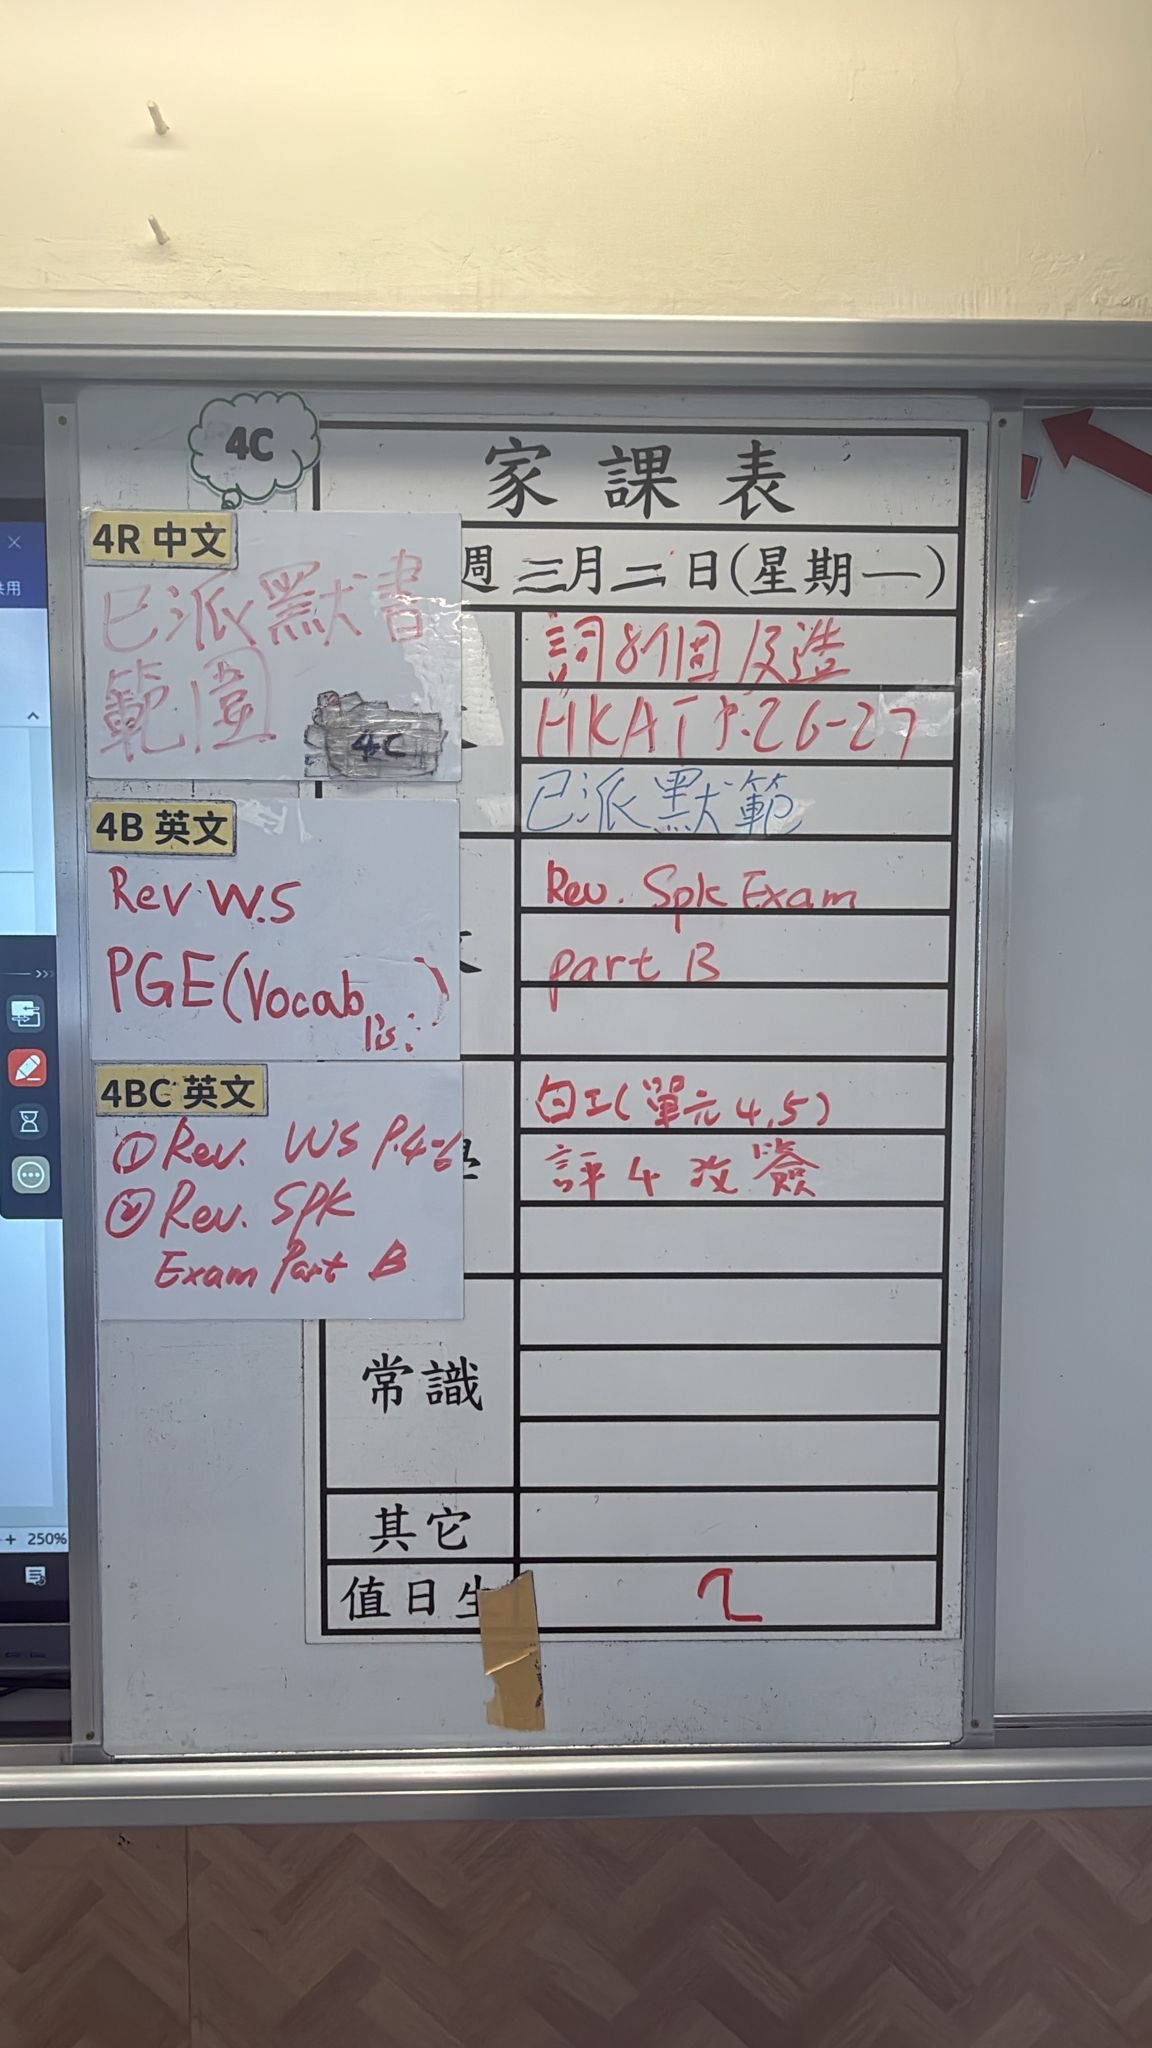 4C
家課表
週三月二日(星期一)
4R 中文
已派默書
範圍
4C
詞8個及造
HKAT P.26-27
已派默範
4B 英文
Rev W.S
PGE(Vocab
Rev. Spk Exam
part B
4BC 英文
① Rev. WS P.4-6
② Rev. Spk
Exam Part B
白工(單元4,5)
評4改簽
常識
其它
值日生
2
共用
+ 250%